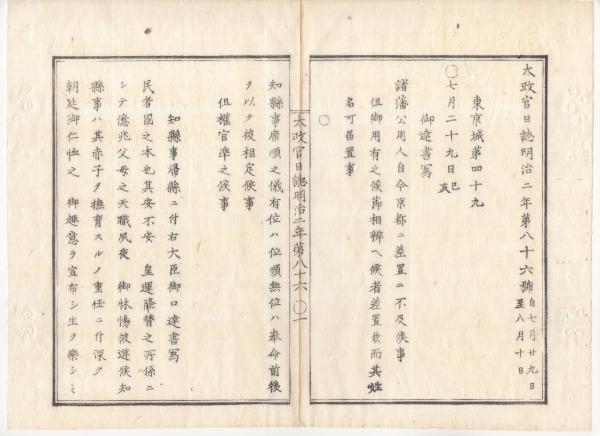 太政官日誌明治二年第八十六號 自七月廿九日 至八月十日
東京城第四十九
○七月二十九日己亥
御達書寫
諸藩公用人自今京都ニ差置ニ不及候事
但御用有之候節相辨ヘ候者差置歎而其姓
名可届置事
○
太政官日誌明治二年第八十六 ○一
知縣事席順之儀有位ハ位順無位ハ奉命前後
ヲ以テ被相定候事
但權官準之候事
知縣事歸縣ニ付右大臣御口達書寫
民者國之本也其安不安 皇運隆替之所係ニ
シテ億兆父母之天職夙夜 御怵惕被遊候知
縣事ハ其赤子ヲ撫育スルノ重任ニ付深ク
朝廷御仁恤之 御趣意ヲ宣布シ生ヲ樂シミ